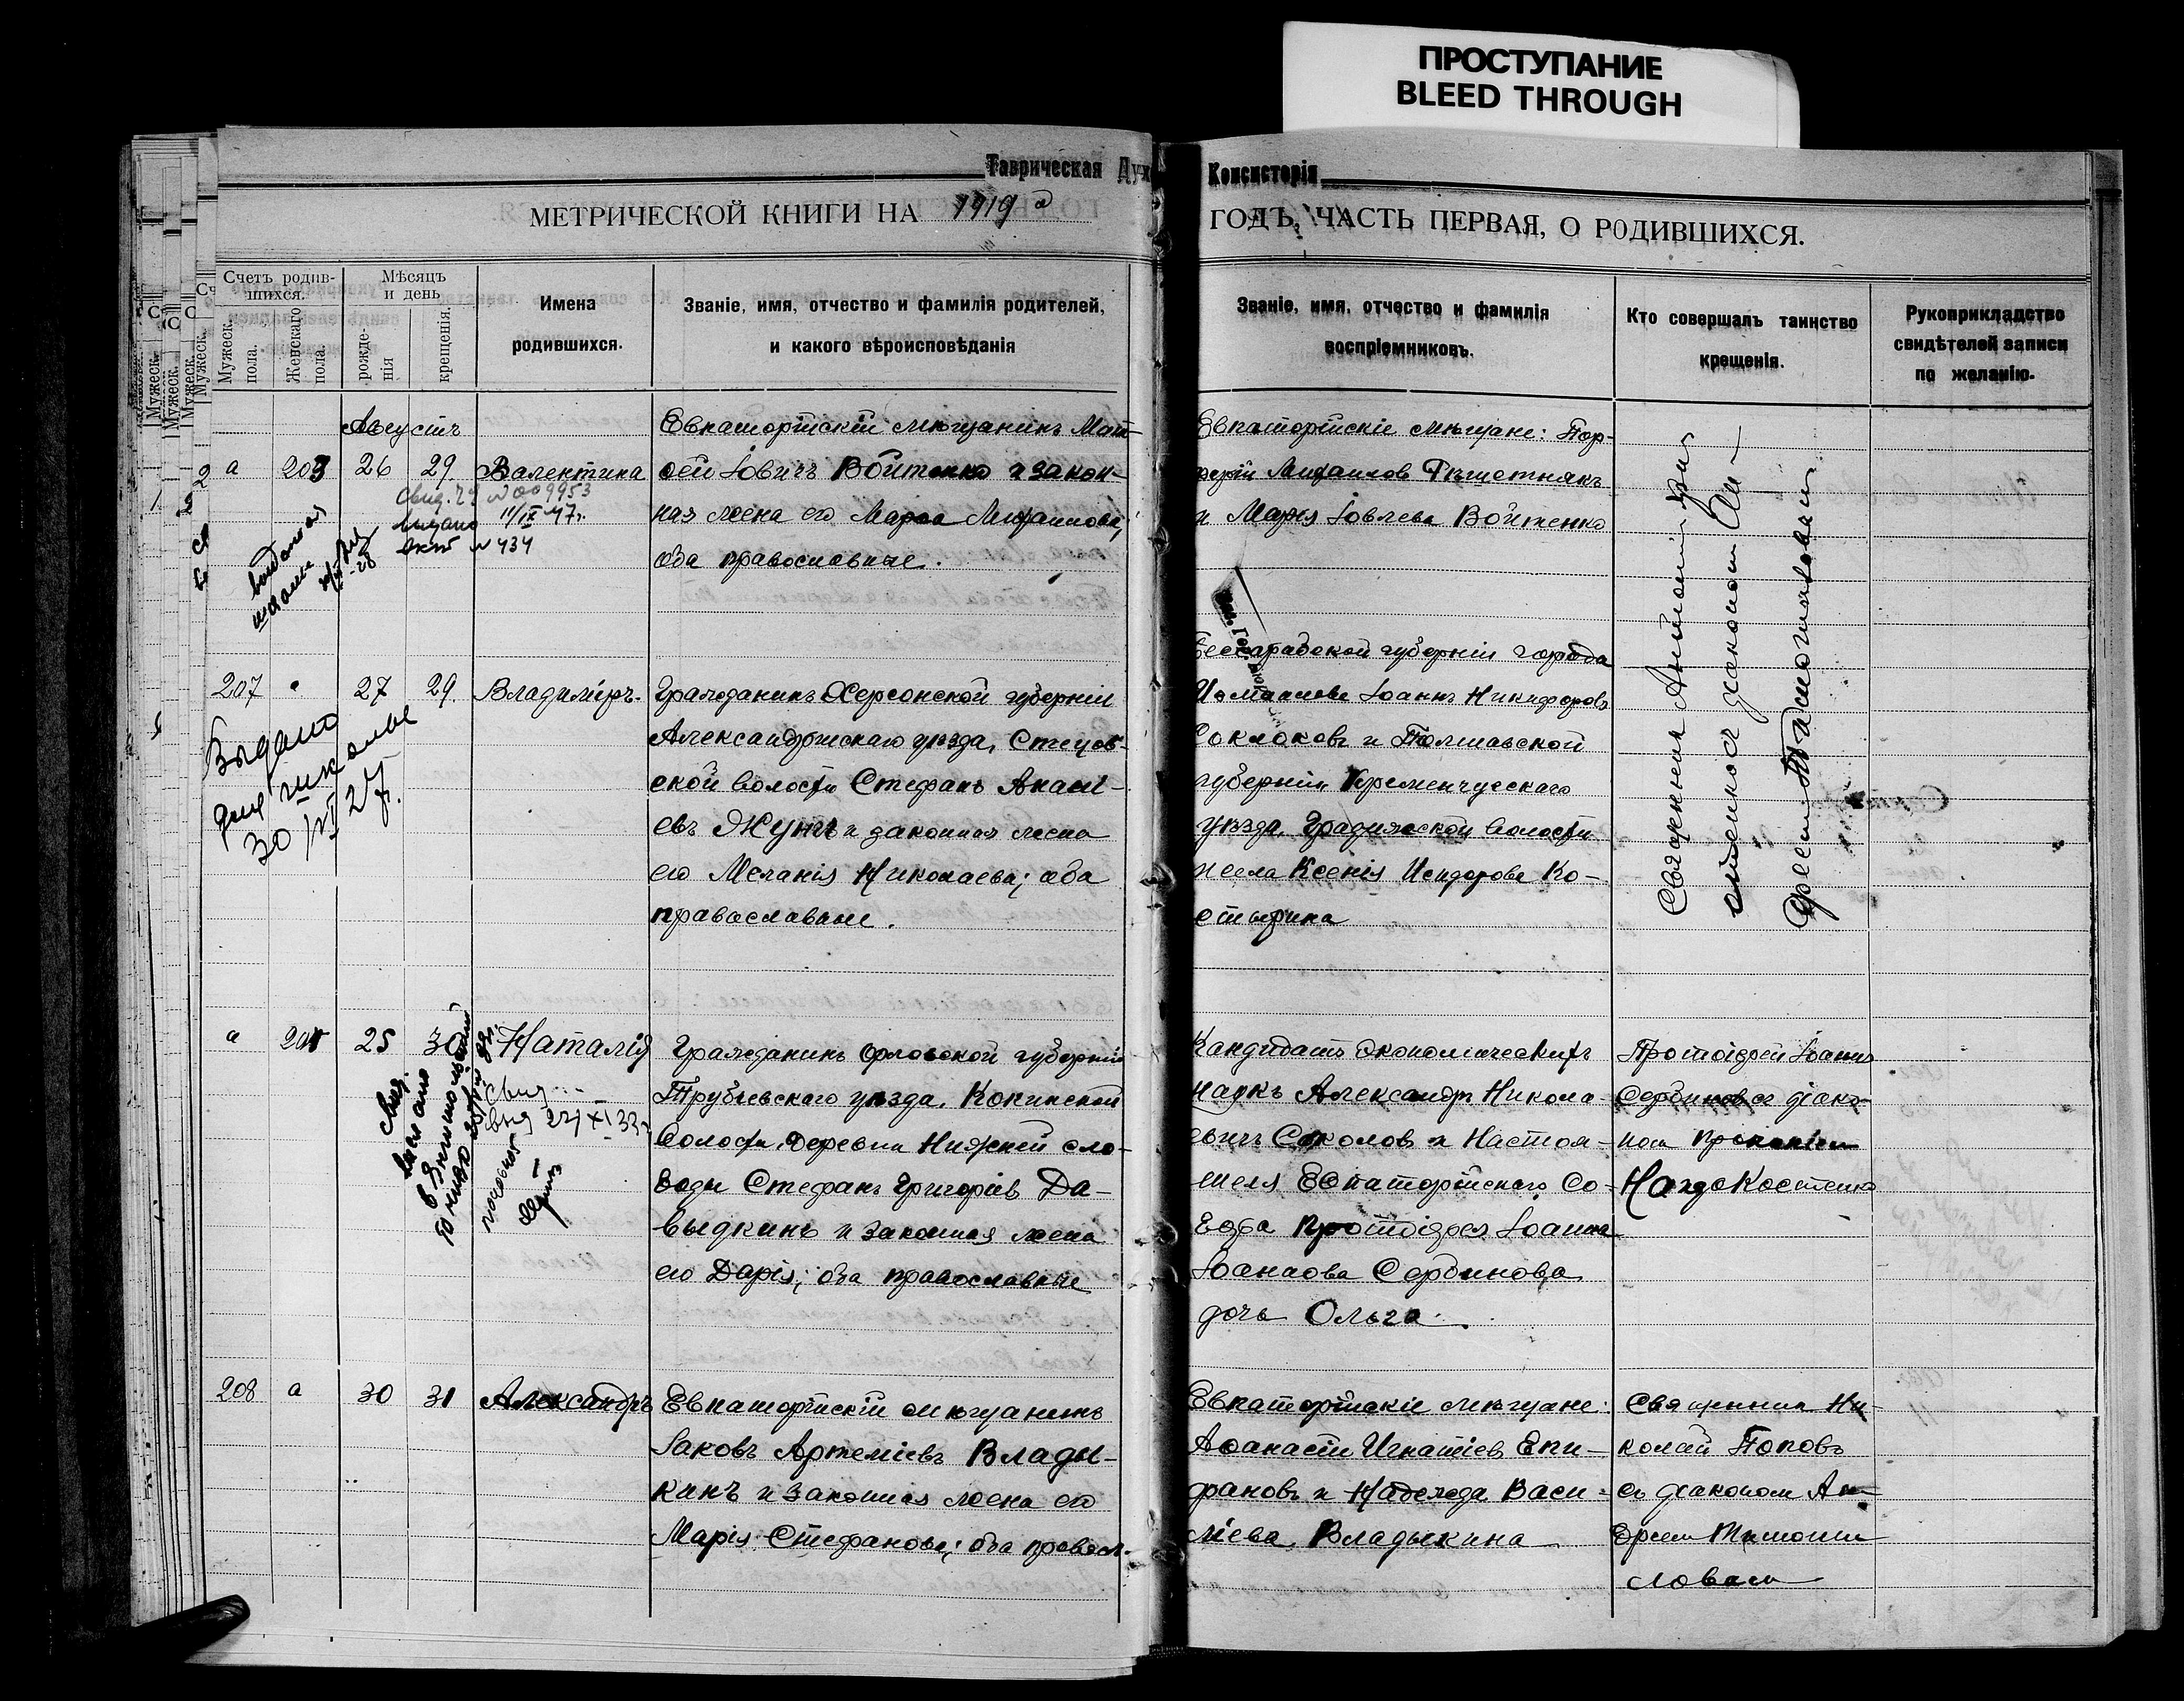 ПРОСТУПАНИЕ
BLEED THROUGH
Таврическая Дух
Консисторія
МЕТРИЧЕСКОЙ КНИГИ НА 1919
ГОДЪ, ЧАСТЬ ПЕРВАЯ, О РОДИВШИХСЯ.
Счетъ родив-
шихся.
Мужеск.
пола.
Женскаго
пола.
Мѣсяцъ
и день
рожде-
нія
крещенія.
Имена
родившихся.
Званіе, имя, отчество и фамилія родителей,
и какого вѣроисповѣданія
Званіе, имя, отчество и фамилія
воспріемниковъ.
Кто совершалъ таинство
крещенія.
Рукоприкладство
свидѣтелей записи
по желанію.
Августъ
а 203 26 29 Валентина
Свид. № 009953
выдано 11/IX 47г.
акт № 434
Евпаторійскій мѣщанинъ Мат-
ѳей Іовичъ Войтенко и закон-
ная жена его Марѳа Михаилова;
оба православные.
Евпаторійскіе мѣщане: Пор-
фирій Михаилов Рѣшетнякъ
и Марія Іовлева Войтенко
Священникъ
діаконом Ан-
дреем Тимошловым
207 27 29. Владиміръ.
Выдано
для школы
30/VI 27г.
Гражданинъ Херсонской губерніи
Александрійскаго уѣзда,
ской волости Стефанъ
евъ и законная жена
его Меланія Николаева; оба
православные.
Бессарабской губерніи города
Измаилова Іоаннъ Никифоровъ
и Полтавской
губерніи, Кременчугскаго
уѣзда, Градижской волости
и села Ксенія Исидорова Ко-
стырина
а 25 30 Наталія
Свид.
выдано
Свид.
выд 22/XI 33г
Гражданинъ Орловской губерніи
Трубчевскаго уѣзда, Кокинской
волости, деревни Нижней сло-
боды Стефанъ Григоріев Да-
выдкинъ и законная жена
его Дарія; оба православные
Кандидатъ экономическихъ
наукъ Александръ Никола-
евичъ Соколов и Настоя-
теля Евпаторійскаго Со-
бора Протоіерея Іоанна
Іоаннова Сербинова
дочь Ольга.
Протоіерей Іоаннъ
Сербиновъ с діако-
ном
208 а 30 31 Александръ
Евпаторійскій мѣщанинъ
Іаковъ Артеміевъ Влады-
кинъ и законная жена его
Марія Стефанова; оба правосл.
Евпаторійскіе мѣщане:
Аѳанасій Игнатіев Епи-
фановъ и Надежда Васи-
ліева Владыкина
Священник Ни-
колай Поповъ
съ діаконом Ан-
дреем Тимоши
ловым